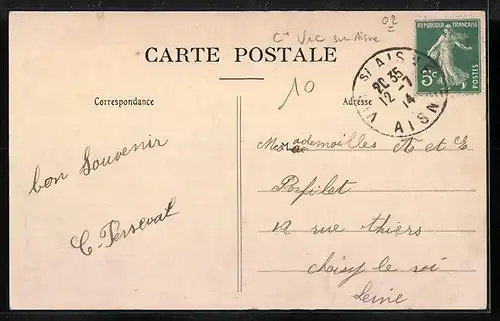 02
Cn Vic sur Aisne
CARTE POSTALE
REPUBLIQUE FRANÇAISE
5c
POSTES
VIC Sr AISNE
20 35
12 - 7
14
AISNE
10
Correspondance
Adresse
Mesdemoilles A et E
bon Souvenir
Porfilet
C. Perseval
12 rue thiers
choisy le roi
Seine